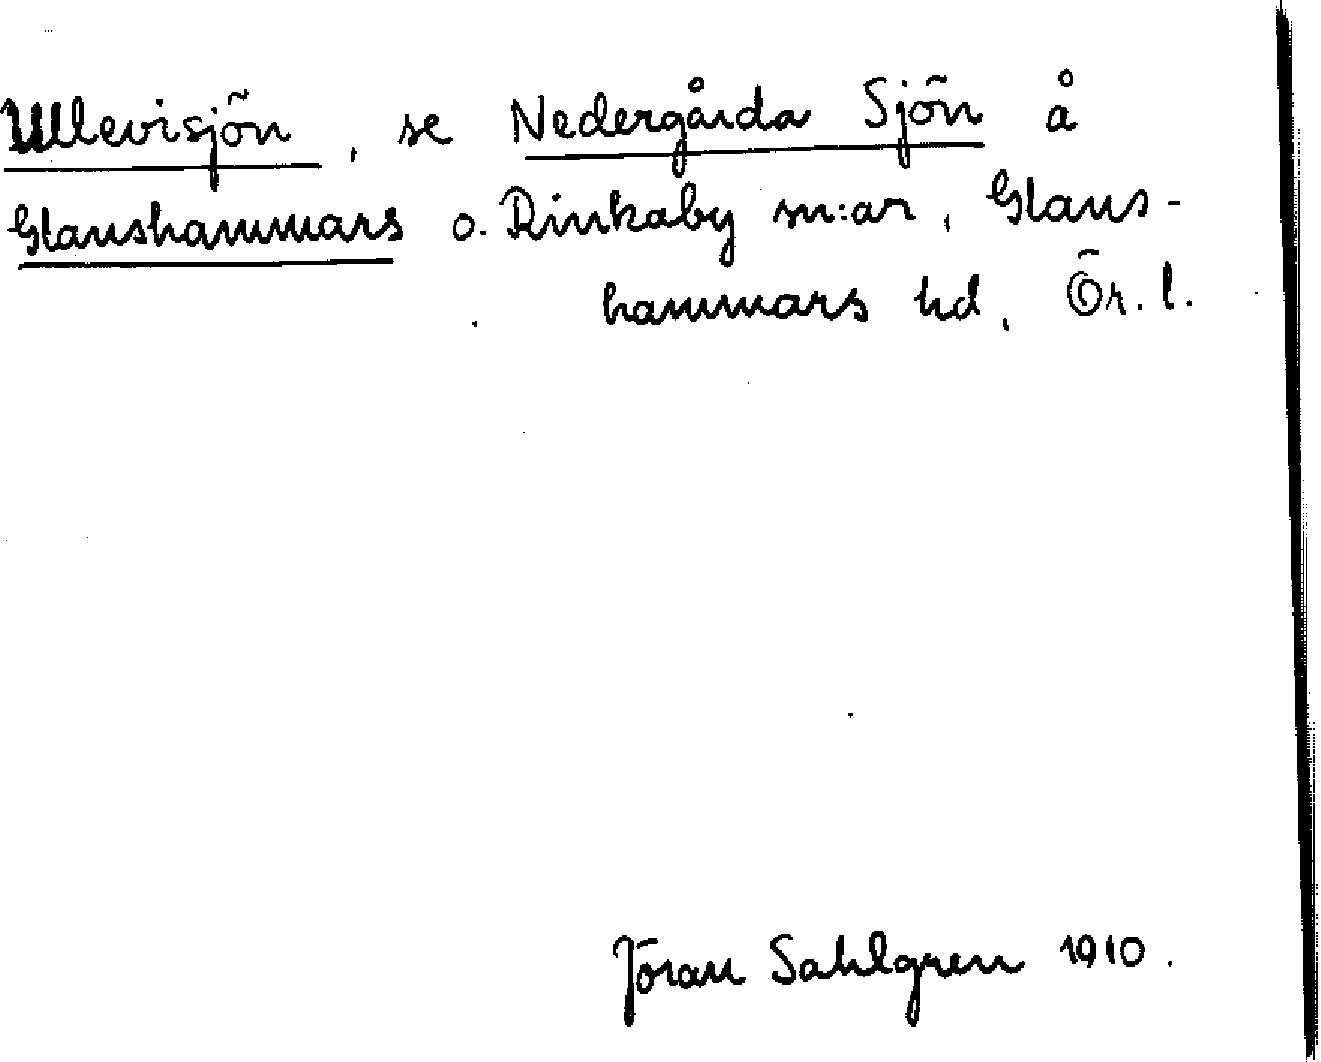 Ullevisjön, se Nedergårda Sjön å
Glanshammars o. Rinkaby sn:ar, Glans-
hammars hd, Ör. l.
Jöran Sahlgren 1910.